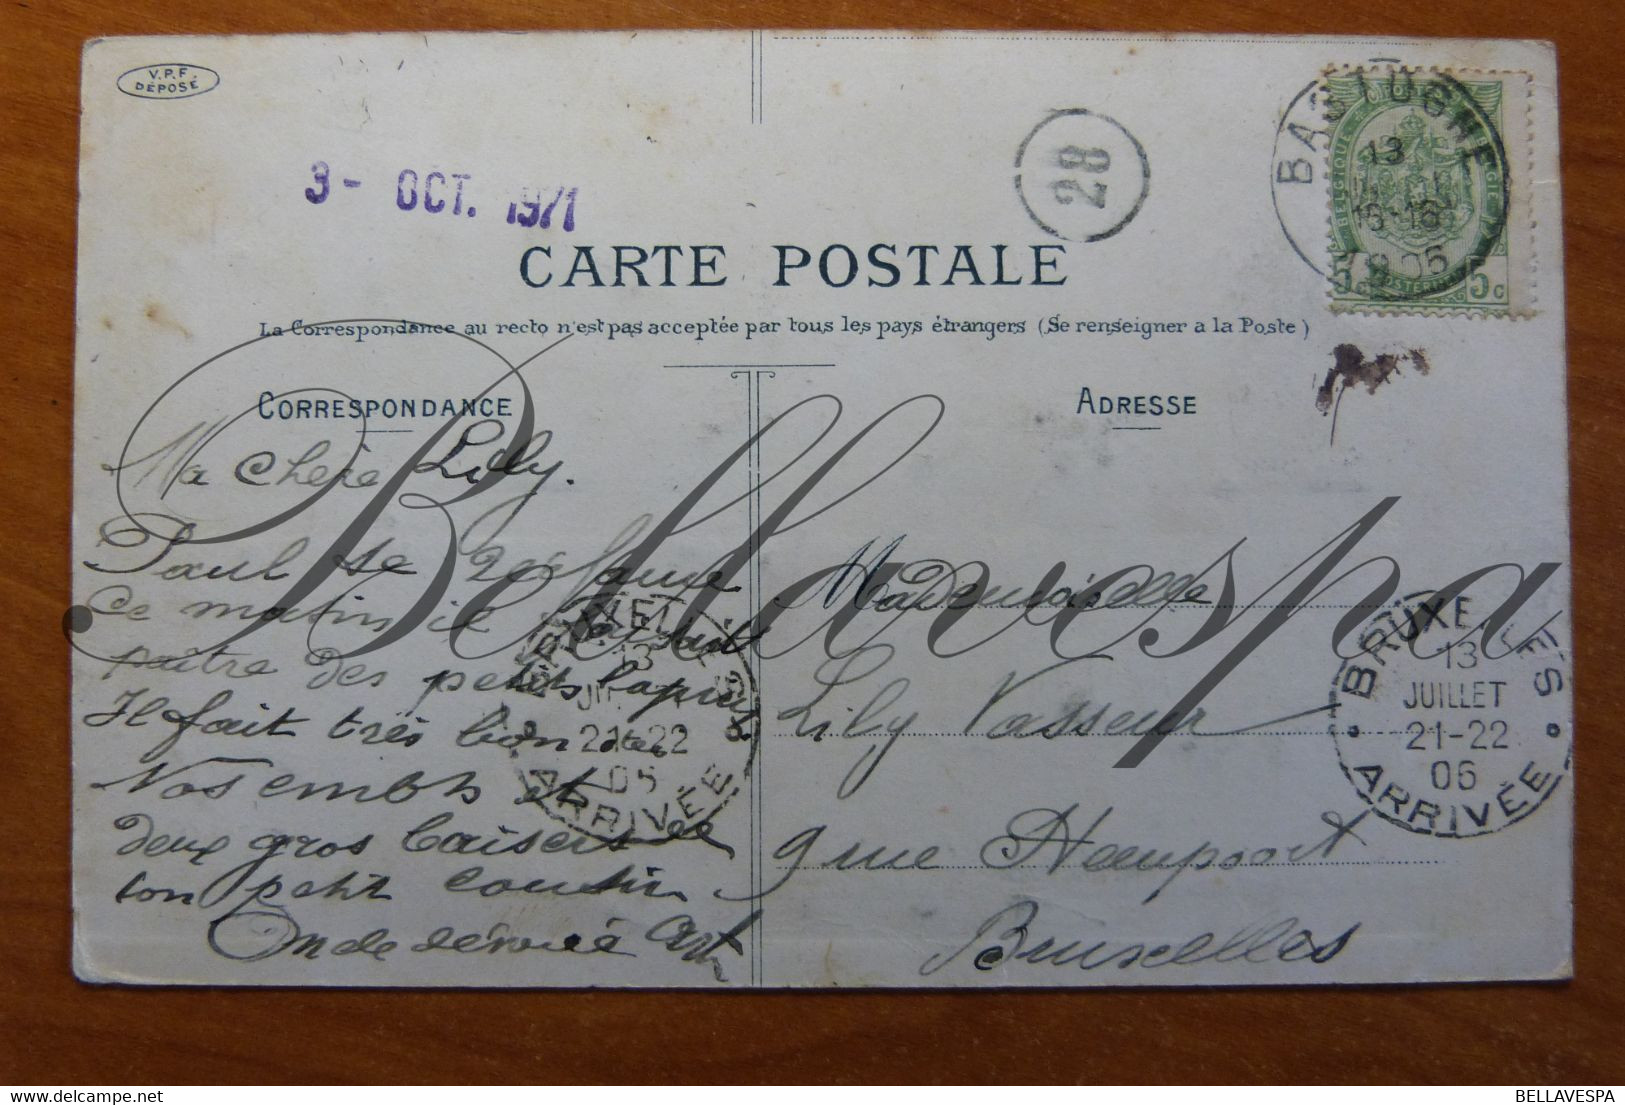 V.P.F.
DÉPOSÉ
3 - OCT. 1971
28
BASTOGNE
13
1906
BELGIQUE
5 5c
CARTE POSTALE
La Correspondance au recto n'est pas acceptée par tous les pays étrangers (Se renseigner a la Poste)
CORRESPONDANCE
ADRESSE
Ma chère Lily.
Paul se
ce matin il
paître des petits lapins
Il fait très bon
Nos embts et
deux gros baisers de
ton petit cousin
Oncle dévoué
Mademoiselle
Lily Vasseur
9 rue Nieuport
Bruxelles
BRUXELLES
13
JUILLET
21-22
06
ARRIVÉE
BRUXELLES
13
21-22
06
ARRIVÉE
Bellavespa
BELLAVESPA